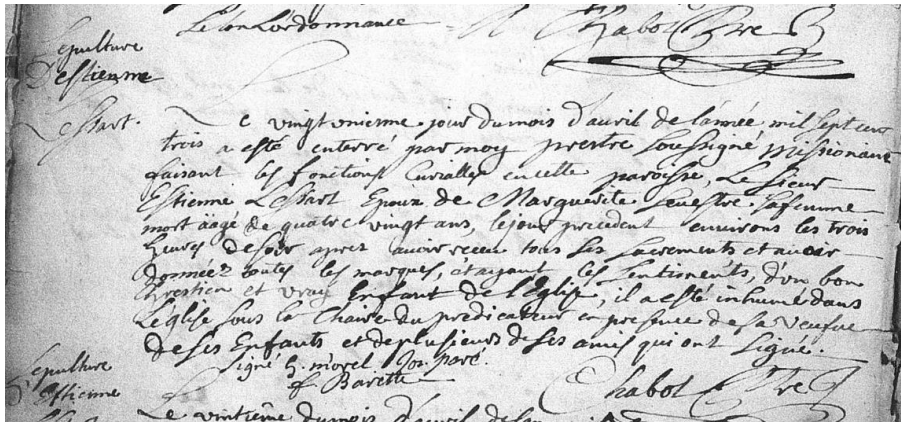 selon L'ordonnance Chabot Ptre
Sepulture
D'estienne
Lessart.
Le vingt unieme jour du mois d'avril de l'année mil sept cent
trois a esté enterré par moy prestre soussigné Missionaire
faisant les fonctions Curialles en cette paroisse, Le Sieur
Estienne Lessart Epoux de Marguerite Sevestre sa femme
mort aagé de quatre vingt ans, le jour precedent environs les trois
heures de soir apres avoir receu tous ses sacrements et avoir
donnéez toutes les marques, et ayant les sentiments, d'un bon
Chrestien et vray Enfant de l'Eglise, il a esté inhumé dans
L'eglise sous la Chaire du predicateur en presence de sa veufve
de ses Enfants et de plusieurs de ses amis qui ont signé.
Signé G. morel. Jos. paré.
f Barette Chabot Ptre
Sepulture
Estienne
Le vintieme du mois d'avril de l'an